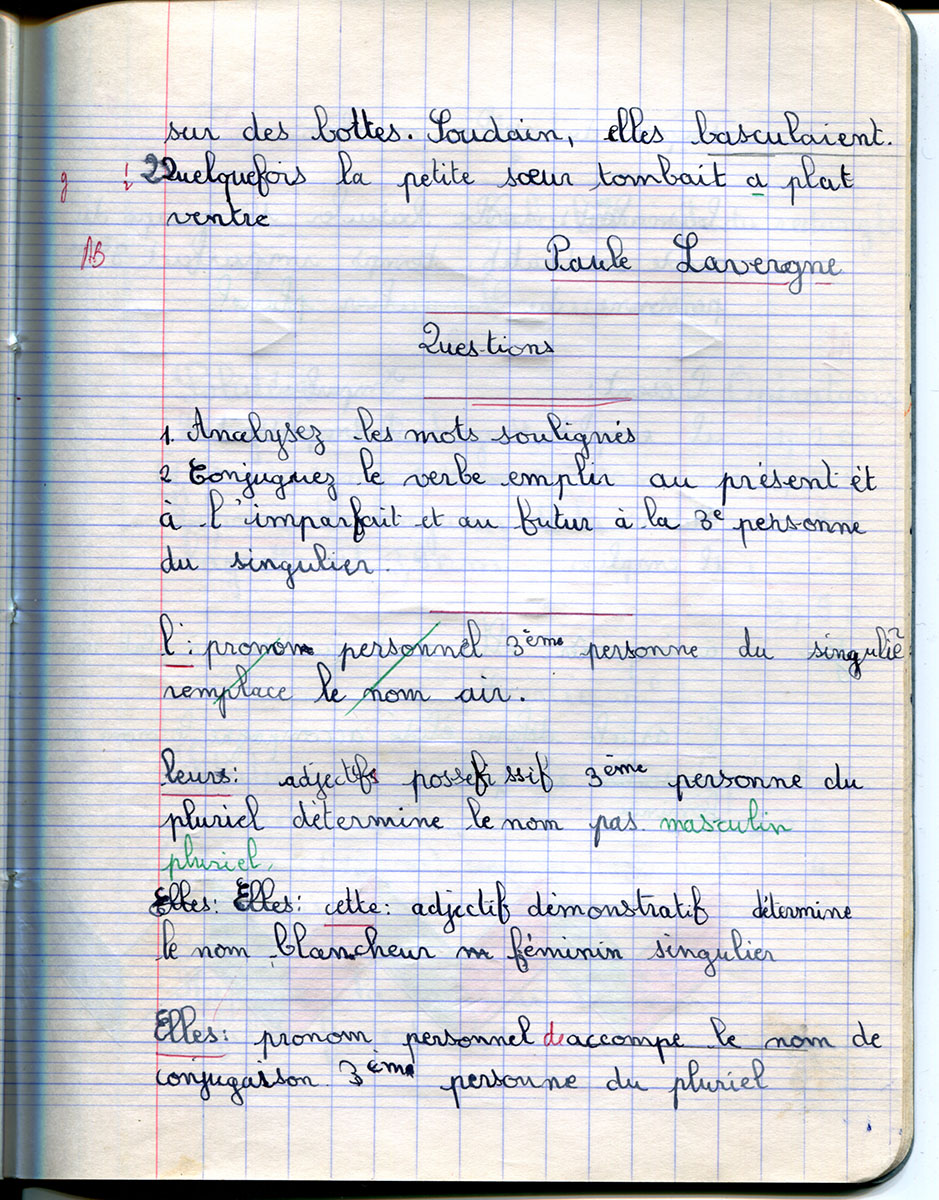 sur des bottes. Soudain, elles basculaient.
Quelquefois la petite sœur tombait a plat
ventre
AB
Paule Lavergne
Questions
1. Analysez les mots soulignés
2 Conjuguez le verbe emplir au présent et
à l'imparfait et au futur à la 3e personne
du singulier.
l': pronom personnel 3ème personne du singulie
remplace le nom air.
leurs: adjectifs possessif 3ème personne du
pluriel détermine le nom pas. masculin
pluriel.
Elles: Elles: cette: adjectif démonstratif détermine
le nom blancheur m féminin singulier
Elles: pronom personnel accompe le nom de
conjugaison 3ème personne du pluriel